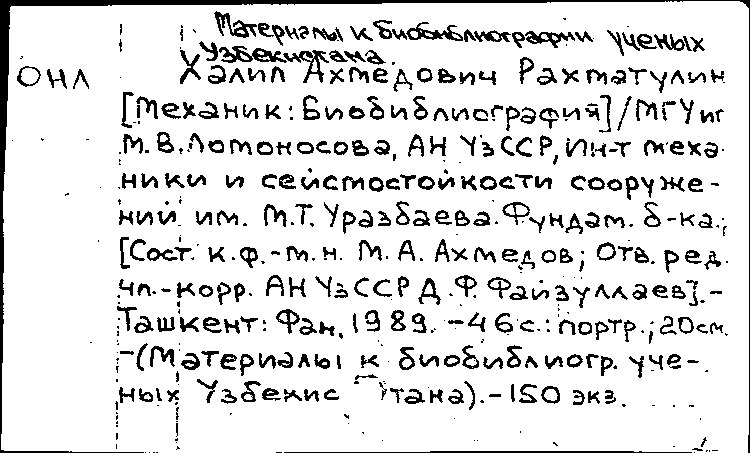 Материалы к биобиблиографии ученых
Узбекистана.
ОНЛ
Халил Ахмедович Рахматулин
[Механик: Биобиблиография]/МГУ им
М.В.Ломоносова, АН УзССР, Ин-т меха
ники и сейсмостойкости сооруже-
ний им. М.Т. Уразбаева. Фундам. б-ка.;
[Сост. к.ф.-м.н. М.А. Ахмедов; Отв. ред.
чл.-корр. АН УзССР Д.Ф. Файзуллаев].-
Ташкент: Фан, 1989. -46с.: портр.; 20см.
-(Материалы к биобиблиогр. уче-
ных Узбекис тана).-150 экз.